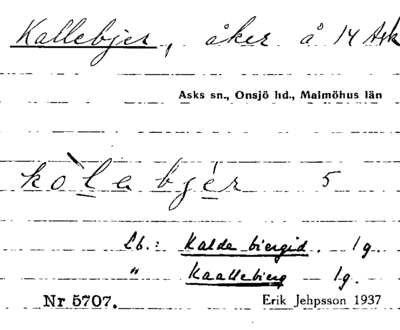 Kallebjer, åker å 14 Ask
Asks sn., Onsjö hd., Malmöhus län
kòlabjér 5
Lb.: Kalde biergid. 1g.
" Kaallebierg — 1g.
Nr 5707. Erik Jehpsson 1937